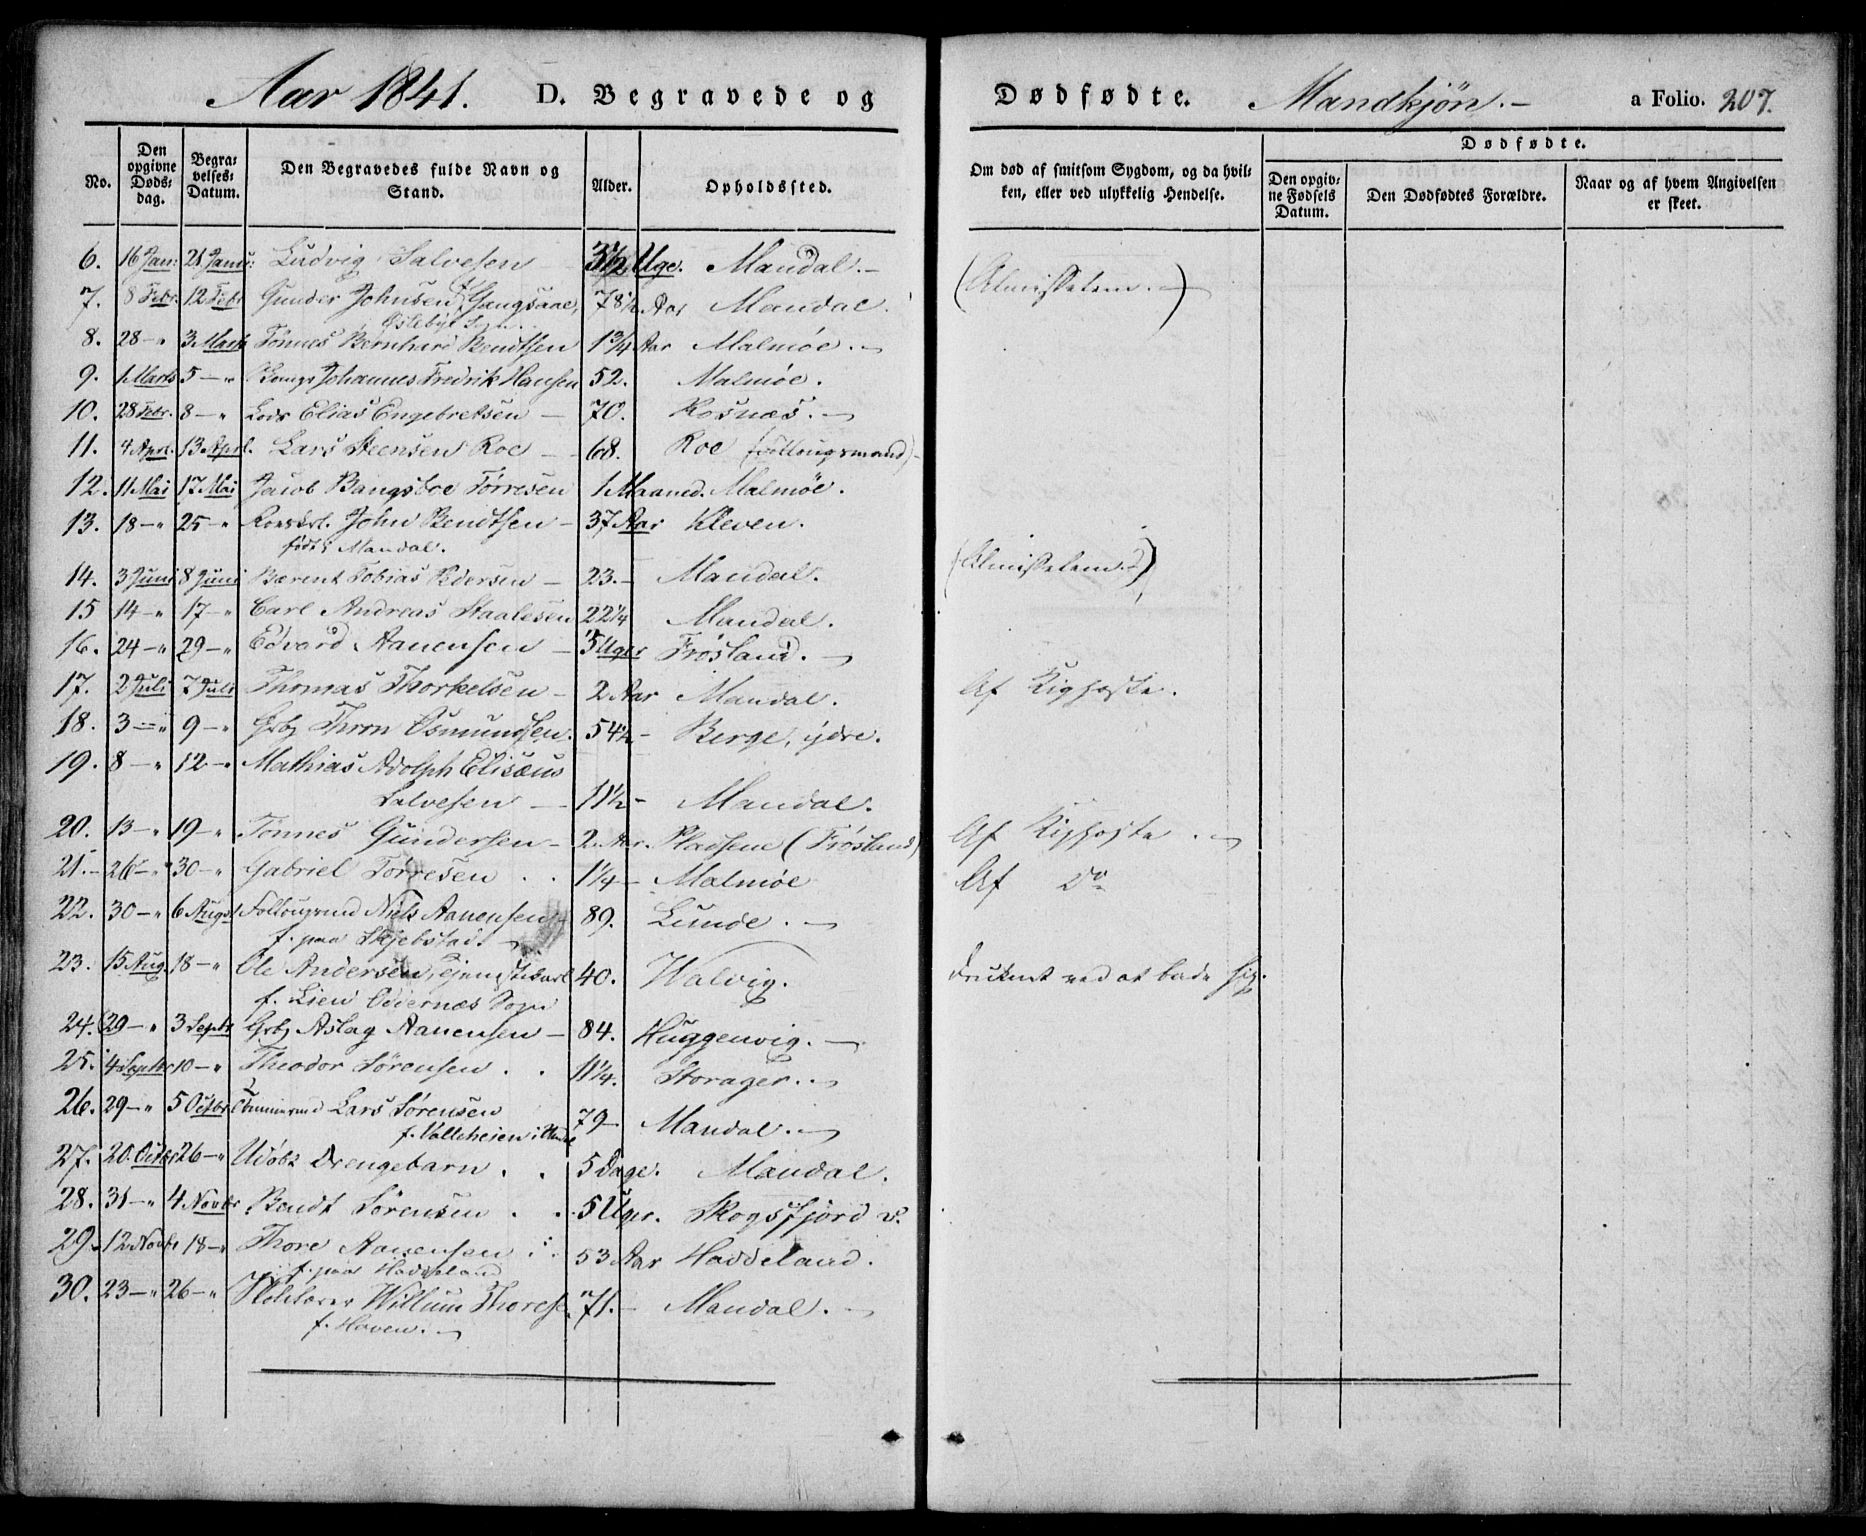 Aar 1841. D. Begravede og Dødfødte. Mandkjøn. a Folio. 207.
No.
Den opgivne Døds: dag.
Begra: velses: Datum.
Den Begravedes fulde Navn og Stand.
Alder.
Opholdssted.
Om død af smitsom Sygdom, og da hvil: ken, eller ved ulykkelig Hendelse.
Dødfødte.
Den opgiv: ne Fødsels Datum.
Den Dødfødtes Forældre.
Naar og af hvem Angivelsen er skeet.
6. 16 Jan: 21 Janu: Ludvig Salvesen 3½ Uge. Mandal.
7. 8 Febr. 12 Febr Gunder Johnsen 78½ Aar Mandal. (Almisselem.)
8. 28 " 3 Marts Tønnes Bernhard Bendtsen 1¾ Aar Malmøe.
9. 1 Marts 5 " Johannes Fredrik Hansen 52. Malmøe.
10. 28 Febr. 8 " Lods Elias Engebretsen 70. Rosnæs.
11. 4 Apr. 13 Apr. Lars Steensen Roe 68. Roe (Follougsmand)
12. 11 Mai 17 Mai Jacob Bangsboe Tørresen 1 Maaned. Malmøe.
13. 18 " 25 " John Bendtsen 37 Aar Kleven.
født i Mandal.
14. 3 Juni 8 Juni Berent Tobias Pedersen 23. Mandal. (Almisselem.)
15 14 " 17 " Carl Andreas Staalesen 22¼ Mandal.
16. 24 " 29 " Edvard Aanensen 3 Uger Frøsland.
17. 2 Juli 7 Juli Thomas Thorkelsen 2 Aar Mandal. Af Kighoste.
18. 3 " 9 " Grbr Thron Osmundsen. 54½ Berge, ydre.
19. 8 " 12 " Mathias Adolph Elisæus
Salvesen 11½ Mandal.
20. 13 " 19 " Tønnes Gundersen 2 Aar. Pladsene (Frøsland) Af Kighoste.
21. 26 " 30 " Gabriel Tørresen 1¼ Malmøe Af Do
22. 30 " 6 Augst Follougmd Niels Aanensen 89. Lunde.
f. paa Skjebstad.
23. 15 Aug. 18 " Ole Andersen, Tjenestekarl 40. Halvig. Druknet ved at bade sig.
f. Lien Odernæs Sogn
24. 29 " 3 Septbr Grbr Aslag Aanensen 84. Huggenvig.
25. 4 Septbr 10 " Theodor Sørensen 11¼. Storager.
26. 29 " 5 Octbr Lars Sørensen 79 Mandal.
f. Valleheien i
27. 20 Octbr 26 " Udøbt Drengebarn 5 Dage. Mandal.
28. 31 " 4 Novbr Bendt Sørensen 5 Uger. Skogsfjord v.
29. 12 Novbr 18 " Thore Aanensen 53 Aar Haddeland.
f. paa Haddeland
30. 23 " 26 " Willum Thorese 71. Mandal.
f. Haven.